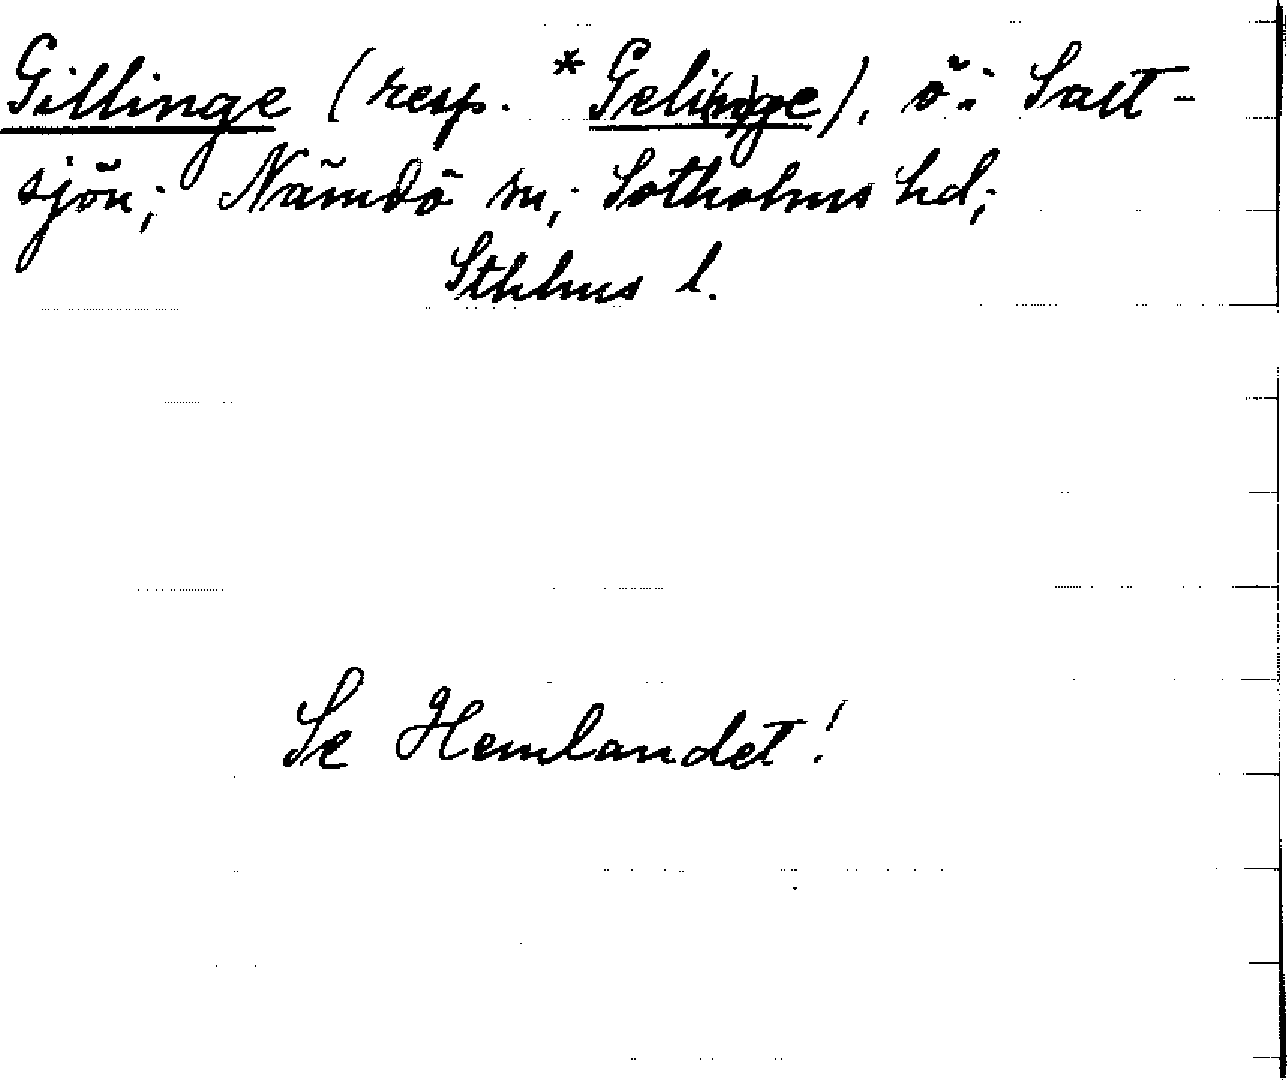 Gillinge (resp. *Geli(n)ge), ö i Salt-
sjön; Nämdö sn; Sotholms hd;
Sthlms l.
Se Hemlandet!